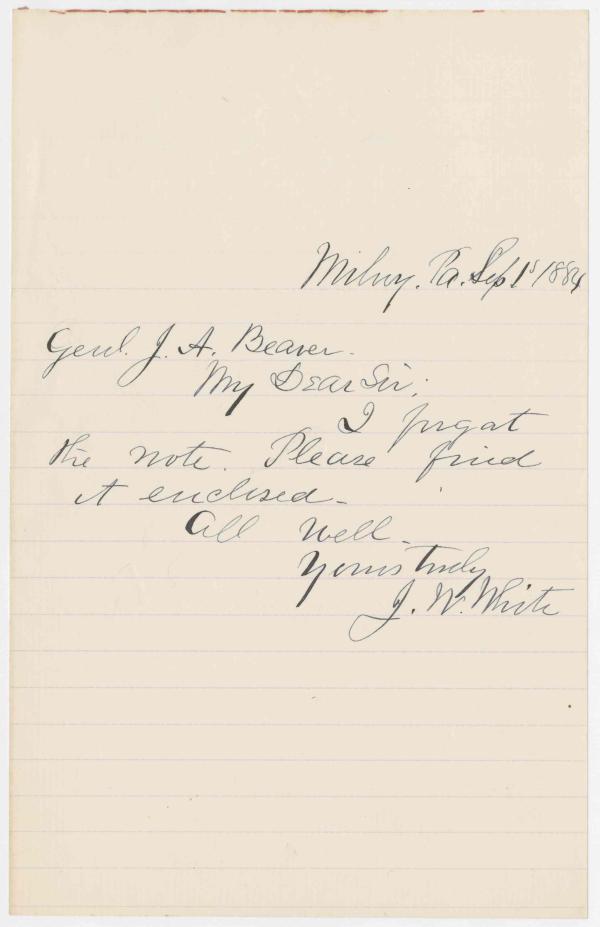 Milroy. Pa. Sep 1s 1884
Genl. J. A. Beaver.
My Dear Sir;
I forgot
the note. Please find
it enclosed_
All well_
Yours truly
J. W. White